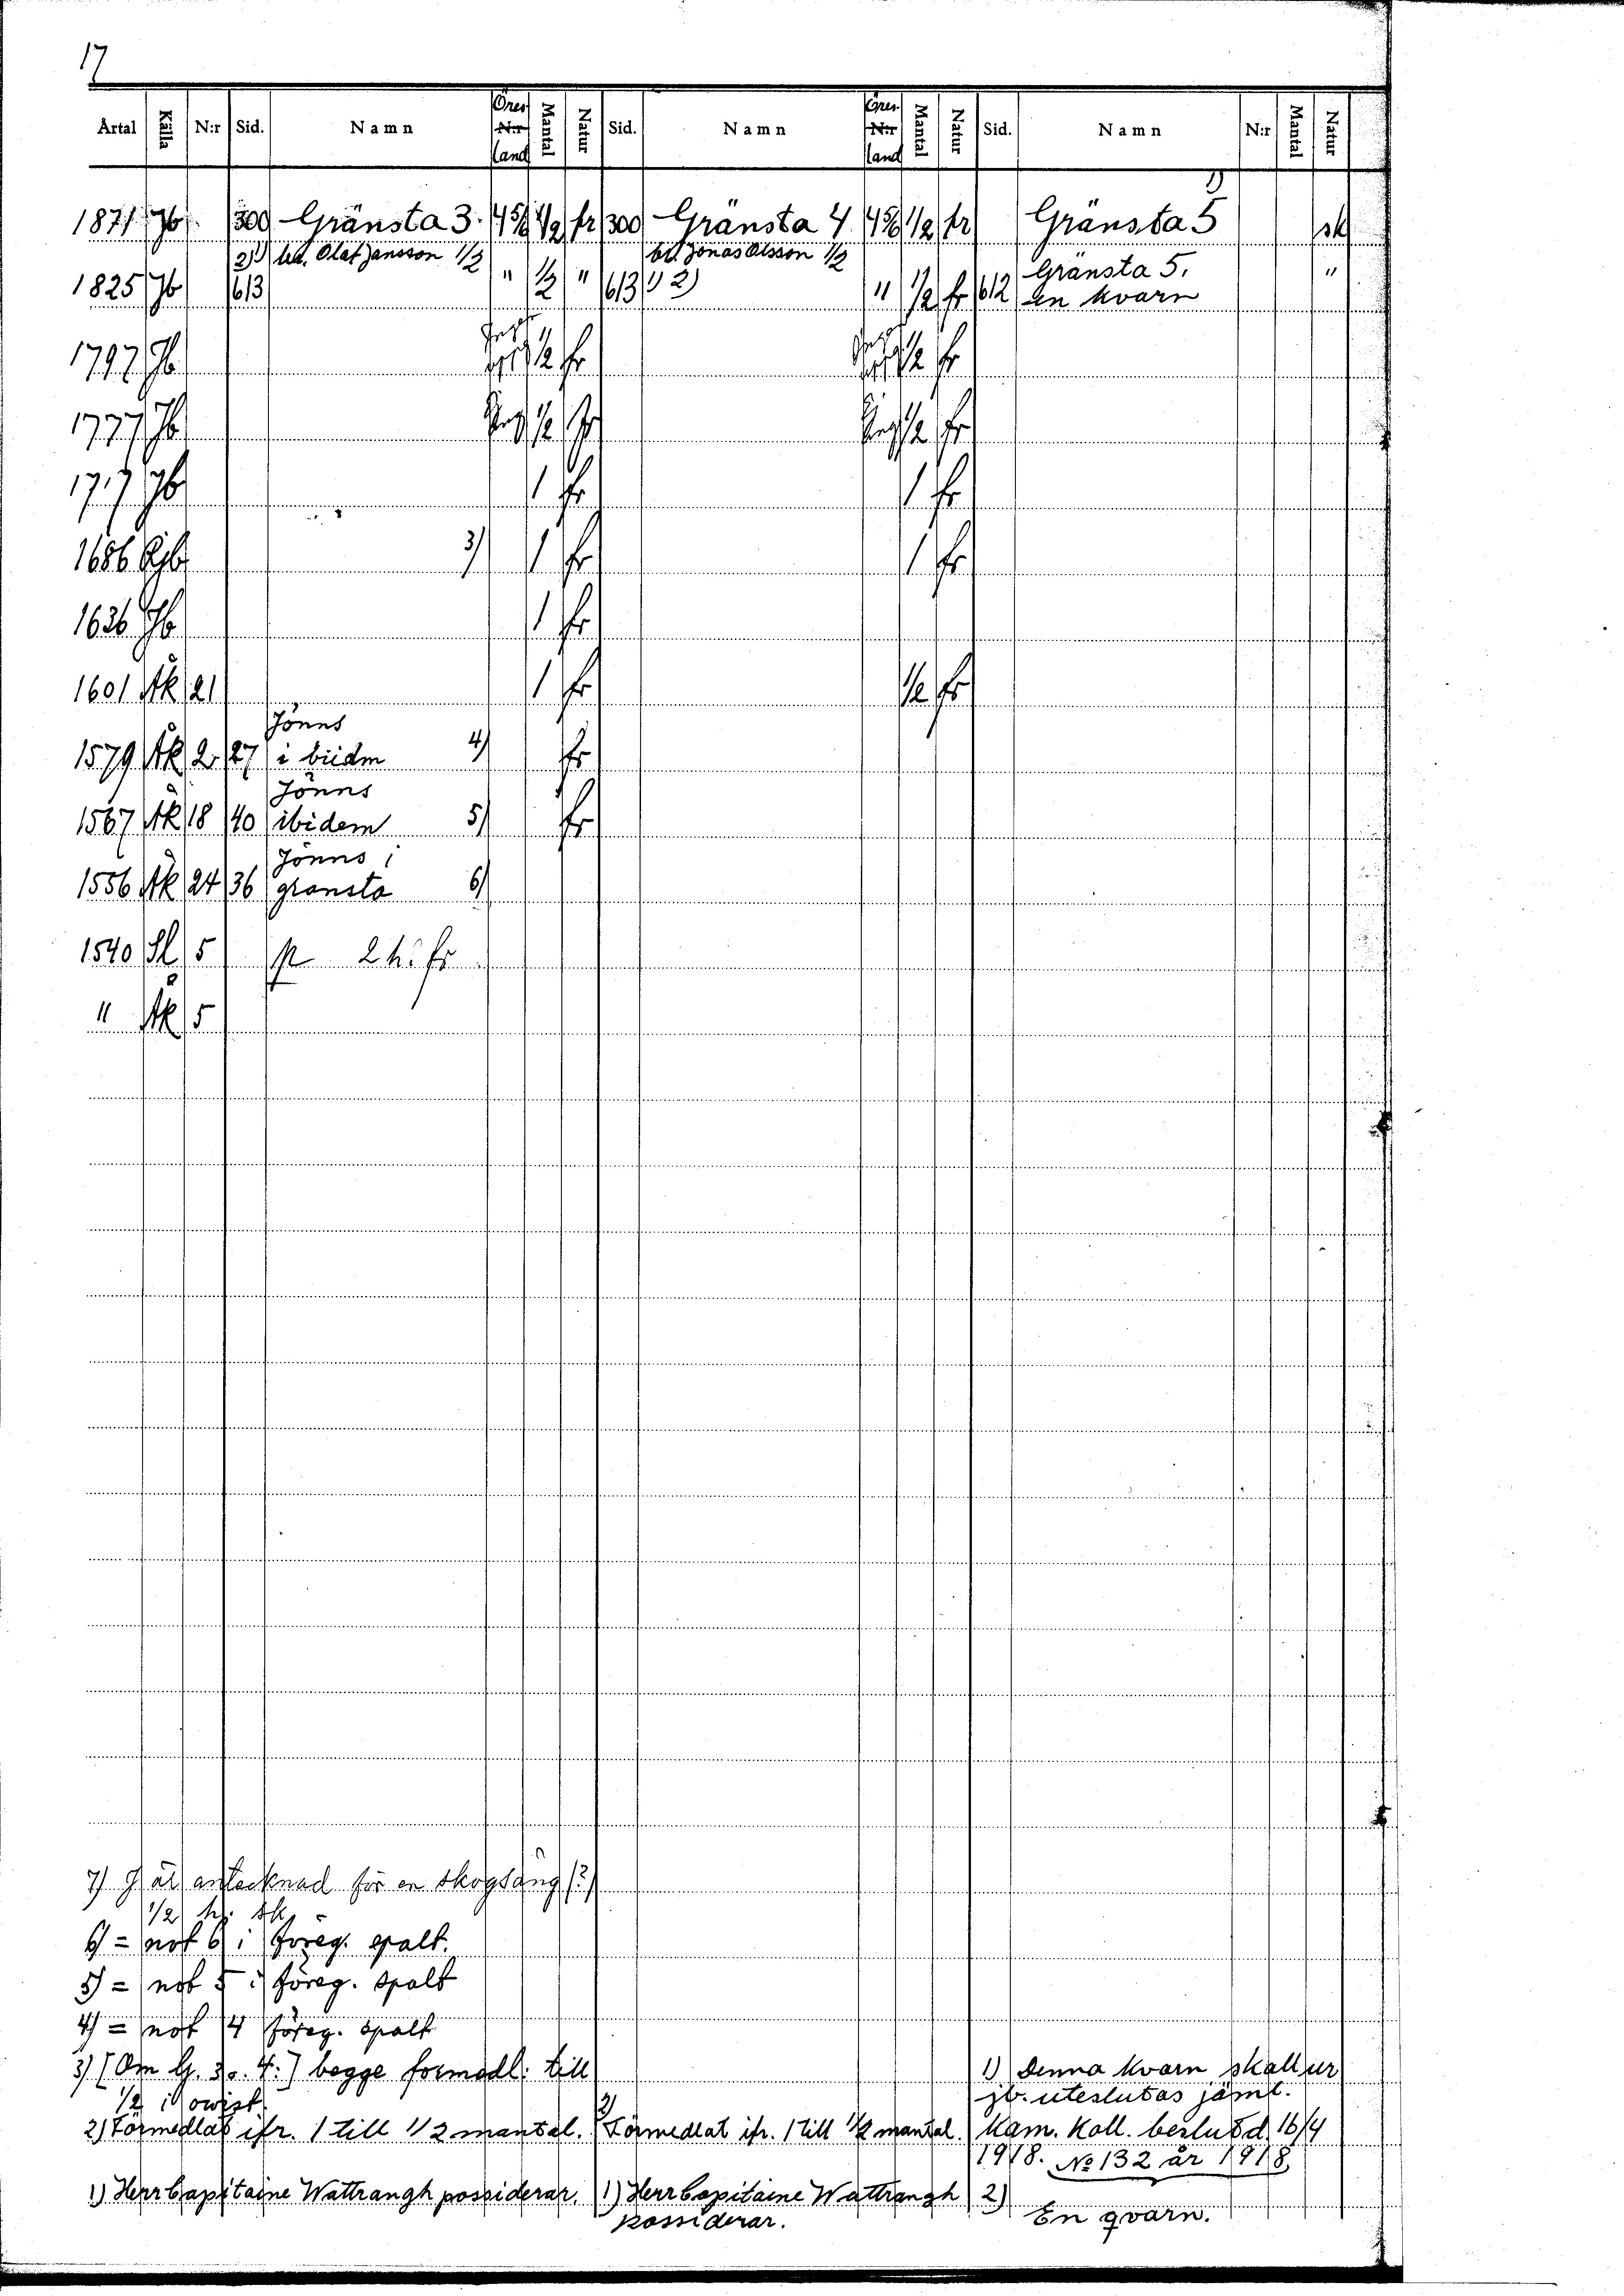 17
Årtal Källa N:r Sid. Namn Öres land Mantal Natur Sid. Namn Öres land Mantal Natur Sid. Namn N:r Mantal Natur
1871 Jb. 300 Gränsta 3. 1/2 fr 300 Gränsta 4 1/2 fr Gränsta 5 sk
bd. Olof Jansson 1/2 bd. Jonas Olsson 1/2 Gränsta 5.
1825 Jb 613 " 1/2 " 613 2) " 1/2 fr 612 en kvarn "
1797 Jb 1/2 fr 1/2 fr
1777 Jb 1/2 fr 1/2 fr
1717 Jb 1 fr 1 fr
1686 3) 1 fr 1 fr
1636 Jb 1 fr
1601 Åk 21 1 fr 1/2 fr
Jönns
1579 Åk 2 27 i biidm 4) fr
Jönns
1567 Åk 18 40 ibidem 5) fr
Jönns i
1556 Åk 24 36 gransta 6)
1540 Sl 5 2 h: fr
" Åk 5
7) G är antecknad för en skogsäng (?)
1/2 sk
6) = not 6 i föreg. spalt.
5) = not 5 i föreg. spalt
4) = not 4 föreg. spalt
3) [Om G. 3 o. 4:] begge formedl: till 1) Denna kvarn skall ur
1/2 jb. uteslutas jämt.
2) Förmedlat ifr. 1 till 1/2 mantal. 2) Förmedlat ifr. 1 till 1/2 mantal. Kam. Koll. beslut d. 16/4
1918. No 132 år 1918
1) Herr Capitaine Wattrangh possiderar. 1) Herr Capitaine Wattrangh 2)
possiderar. En qvarn.